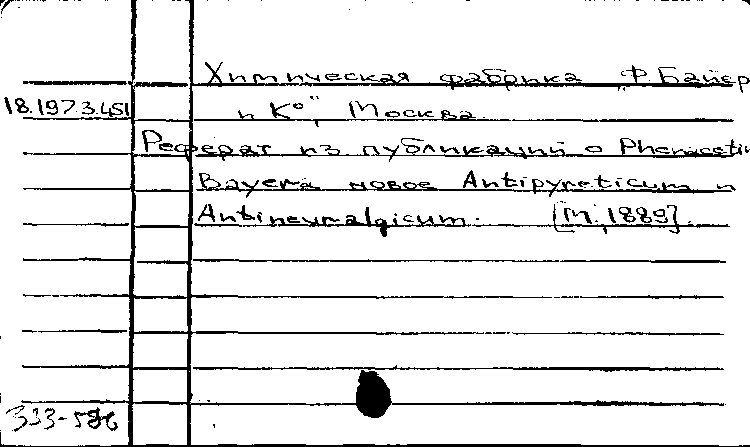 Химическая фабрика „Ф. Байер
18.197.3.451 и К°", Москва.
Реферат из публикаций о Phenacetin
Bayer'a новое Antipyreticum и
Antineuralgicum. [М., 1889].
333-586